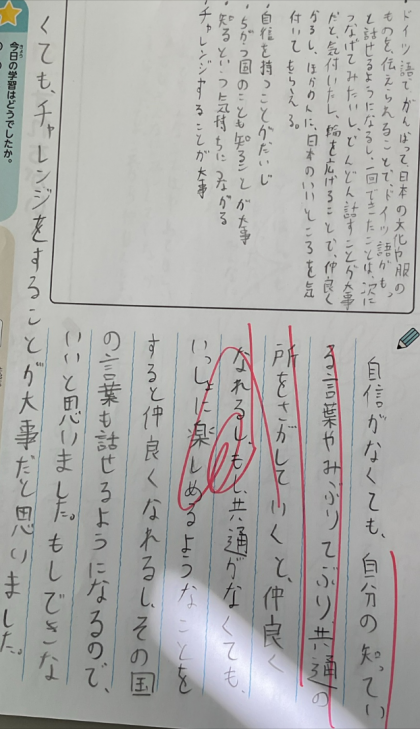 ドイツ語でがんばって日本の文化や服の
ものを伝えられることで、ドイツ語がもっ
と話せるようになるし、一回できたことは、次に
つなげてみたいし、どんどん話すことが大事
だと気付いたし、輪を広げることで、仲良く
なるし、ほかの人に、日本のいいところを気
付いてもらえる。
自信を持つことがだいじ
ちがう国のことも知ることが大事
知るといった気持ちにつながる
チャレンジすることが大事
今日の学習はどうでしたか。
自信がなくても、自分の知ってい
る言葉やみぶりてぶり、共通の
所をさがしていくと、仲良く
なれるし、もし共通がなくても、
いっしょに楽しめるようなことを
すると仲良くなれるし、その国
の言葉も話せるようになるので、
いいと思いました。もしできな
くても、チャレンジをすることが大事だと思いました。